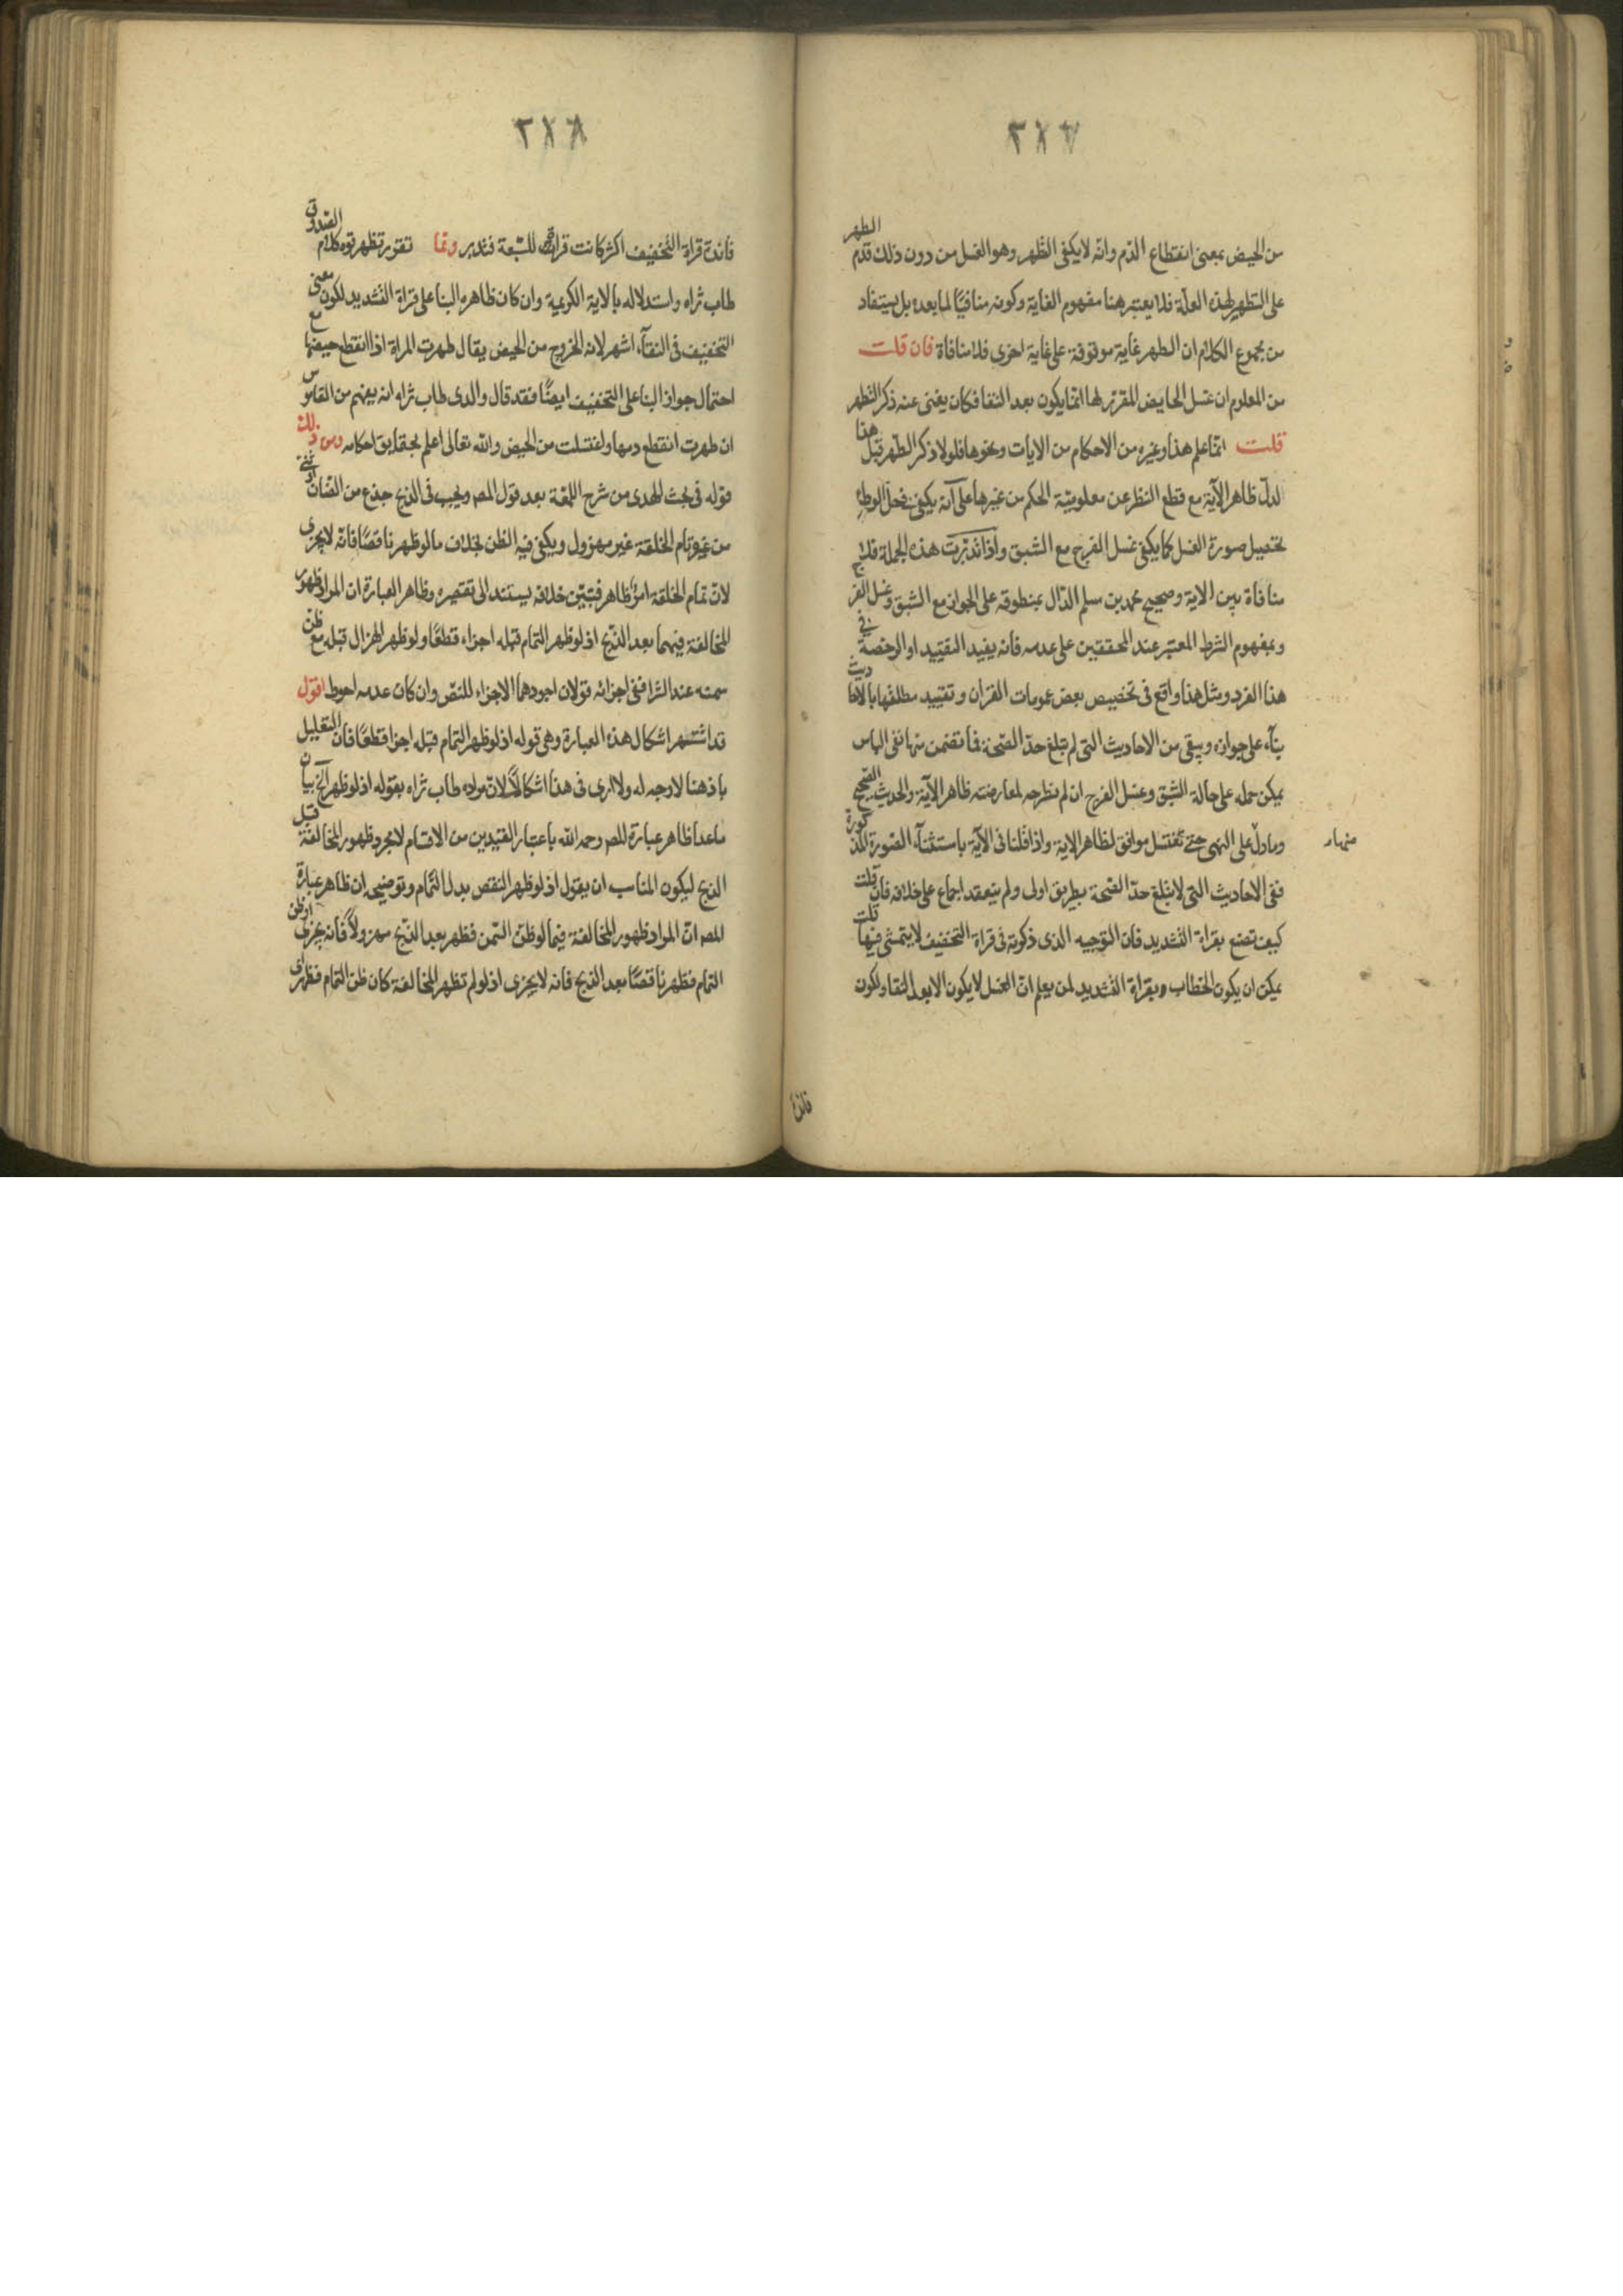 ٢٨٧
من الحيض بمعنى انقطاع الدم وانه لا يكفى الظهر وهو الغسل من دون ذلك قدم الطهر
على التطهير لهذه العلة فلا يعتبر هنا مفهوم الغاية وكونه منافيًا لما بعده بل يستفاد
من مجموع الكلام ان الطهر غاية موقوفة على غاية اخرى فلا منافاة فان قلت
من المعلوم ان غسل الحايض المقرر لها انما يكون بعد النقا فكان يغنى عنه ذكر التطهر
قلت انما علم هذا وغيره من الاحكام من الايات ونحوها فلولا ذكر الطهر قبل هذا
لدل ظاهر الآية مع قطع النظر عن معلومية الحكم من غيرها على انه يكفى فى حل الوطئ
تحصيل صورة الغسل كما يكفى غسل الفرج مع الشبق واذا تدبرت هذه الجملة فلا
منافاة بين الاية وصحيح محمد بن مسلم الدال بمنطوقه على الجواز مع الشبق وغسل الفرج
وبمفهوم الشرط المعتبر عند المحققين على عدمه فانه يفيد التقييد او الرخصة فى
هذا الفرد ومثل هذا واقع فى تخصيص بعض عمومات القران وتقييد مطلقها بالاحاديث
بناء على جوازه ويبقى من الاحاديث التى لم تبلغ حد الصحة فما تضمن منها نفى الباس
يمكن حمله على حالة الشبق وغسل الفرج ان لم نطرحه لمعارضته ظاهر الآية والحديث الصحيح
وما دل على النهى حتى تغتسل موافق لظاهر الاية واذا قلنا فى الآية باستثناء الصورة المذكورة
ففى الاحاديث التى لا تبلغ حد الصحة بطريق اولى ولم ينعقد اجماع على خلافه فان قلت
كيف تصنع بقراة التشديد فان التوجيه الذى ذكرته فى قراة التخفيف لا يتمشى فيها قلت
يمكن ان يكون الخطاب وبقراة التشديد لمن يعلم ان الغسل لا يكون الا بعد النقا ولكون
منها
٢٨٨
فائدة قراة التخفيف اكثر كانت قراة للسبعة فتدبر ومما تقرر تظهر قوة كلام الصدوق
طاب ثراه واستدلاله بالاية الكريمة وان كان ظاهره البنا على قراة التشديد لكون معنى
التخفيف فى النقاء اشهر لانه الخروج من الحيض يقال طهرت المراة اذا انقطع حيضها مع
احتمال جواز البنا على التخفيف ايضًا فقد قال والدى طاب ثراه انه يفهم من القاموس
ان طهرت انقطع دمها واغتسلت من الحيض والله تعالى اعلم بحقايق احكامه ومن ذلك
قوله فى بحث الهدى من شرح اللمعة بعد قول المص ويجب فى الذبح جذع من الضان او ثنى
من غيره تام الخلقة غير مهزول ويكفى فيه الظن بخلاف ما لو ظهر ناقصًا فانه لا يجزى
لان تمام الخلقة امر ظاهر فتبين خلافه يستند الى تقصيره وظاهر العبارة ان المراد ظهور
المخالفة فيهما بعد الذبح اذ لو ظهر التمام قبله اجزاء قطعًا ولو ظهر الهزال قبله مع ظن
سمنه عند الشرا ففى اجزائه قولان اجودهما الاجزاء للنص وان كان عدمه احوط اقول
قد اشتهر اشكال هذه العبارة وهى قوله اذ لو ظهر التمام قبله اجزا قطعًا فان التعليل
باذ هنا لا وجه له ولا ارى فى هذا اشكالًا لان مراده طاب ثراه بقوله اذ لو ظهر الخ بيان
ما عدا ظاهر عبارة المص رحمه الله باعتبار القيدين من الاقسام لا مجرد ظهور المخالفة قبل
الذبح ليكون المناسب ان يقول اذ لو ظهر النقص بدل التمام وتوضيحه ان ظاهر عبارة
المص ان المراد ظهور المخالفة فيما لو ظن السمن فظهر بعد الذبح مهزولًا فانه يجزى او ظن
التمام فظهر ناقصًا بعد الذبح فانه لا يجزى اذ لو لم تظهر المخالفة كان ظن التمام فظهر
فائدة